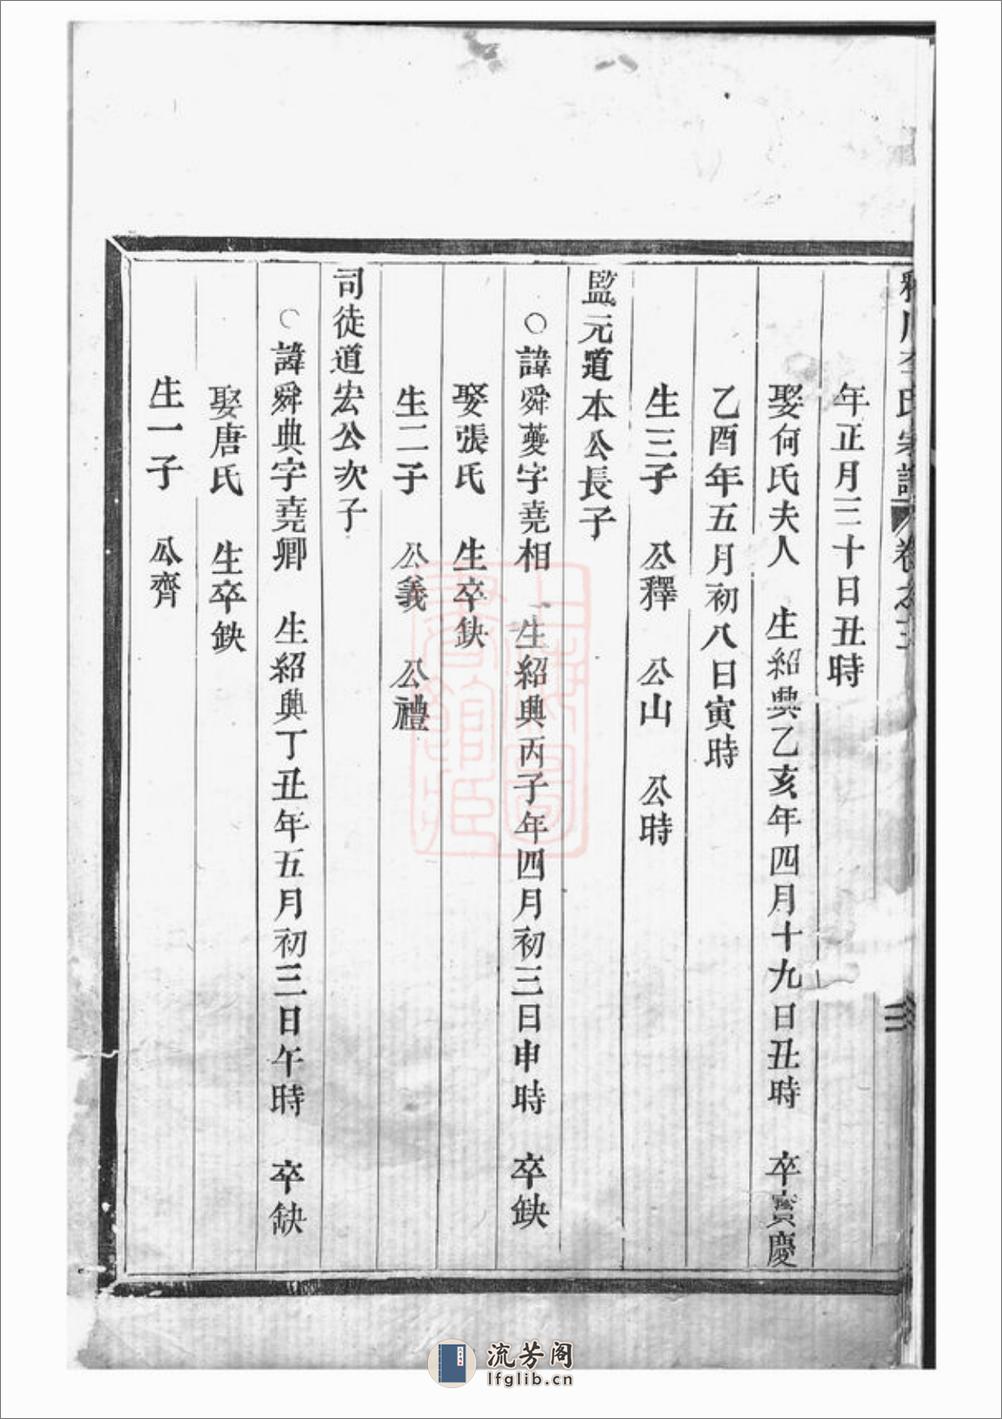 李氏宗譜 卷之三
年正月三十日丑時
娶何氏夫人 生紹興乙亥年四月十九日丑時 卒寳慶
乙酉年五月初八日寅時
生三子 公釋 公山 公時
監元道本公長子
○諱舜夔字堯相 生紹興丙子年四月初三日申時 卒缺
娶張氏 生卒缺
生二子 公義 公禮
司徒道宏公次子
○諱舜典字堯卿 生紹興丁丑年五月初三日午時 卒缺
娶唐氏 生卒缺
生一子 公齊
上海圖書館藏
流芳阁
lfglib.cn